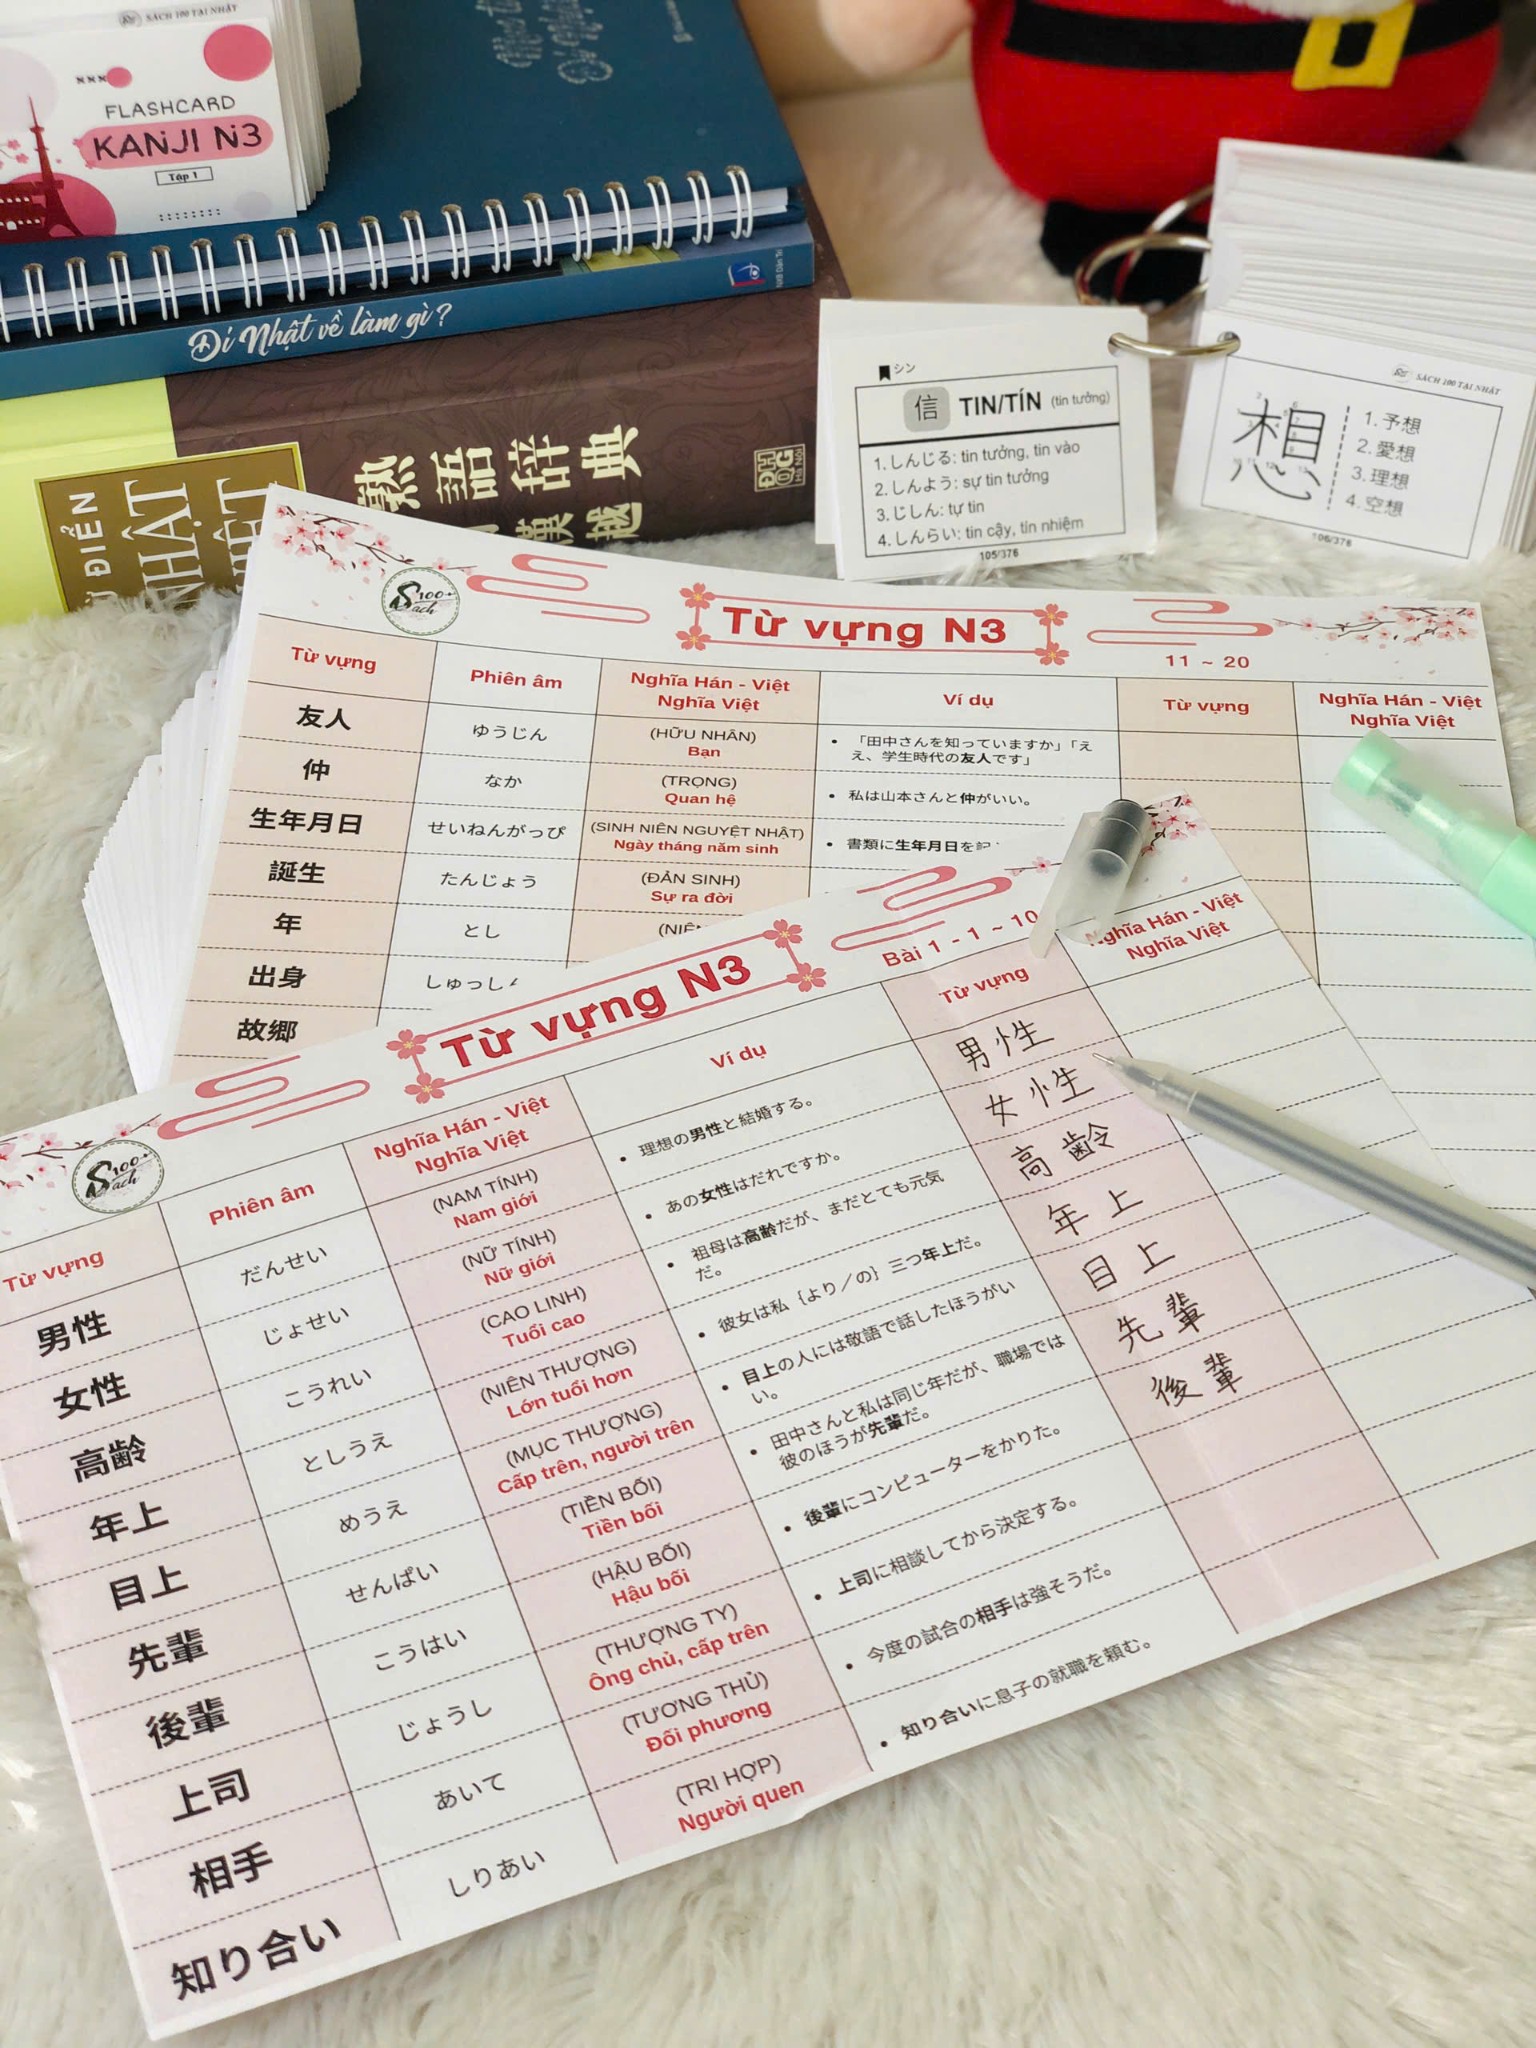 SÁCH 100 TẠI NHẬT
FLASHCARD
KANJI N3
Tập 1
Đi Nhật về làm gì?
NXB Dân Trí
熟語辞典
TỪ ĐIỂN
NHẬT
VIỆT
ĐHQG
Hà Nội
シン
信 TIN/TÍN (tin tưởng)
1. しんじる: tin tưởng, tin vào
2. しんよう: sự tin tưởng
3. じしん: tự tin
4. しんらい: tin cậy, tín nhiệm
105/376
SÁCH 100 TẠI NHẬT
想
1. 予想
2. 愛想
3. 理想
4. 空想
106/376
100+
Sach
Từ vựng N3
11 ~ 20
Từ vựng Phiên âm Nghĩa Hán - Việt Nghĩa Việt Ví dụ Từ vựng Nghĩa Hán - Việt Nghĩa Việt
友人 ゆうじん (HỮU NHÂN) Bạn • 「田中さんを知っていますか」「ええ、学生時代の友人です」
仲 なか (TRỌNG) Quan hệ • 私は山本さんと仲がいい。
生年月日 せいねんがっぴ (SINH NIÊN NGUYỆT NHẬT) Ngày tháng năm sinh • 書類に生年月日を
誕生 たんじょう (ĐẢN SINH) Sự ra đời
年 とし
出身 しゅっし
故郷
100+
Sach
Từ vựng N3
Bài 1 - 1 ~ 10
Từ vựng Phiên âm Nghĩa Hán - Việt Nghĩa Việt Ví dụ Từ vựng Nghĩa Hán - Việt Nghĩa Việt
男性 だんせい (NAM TÍNH) Nam giới • 理想の男性と結婚する。 男性
女性 じょせい (NỮ TÍNH) Nữ giới • あの女性はだれですか。 女性
高齢 こうれい (CAO LINH) Tuổi cao • 祖母は高齢だが、まだとても元気だ。 高齢
年上 としうえ (NIÊN THƯỢNG) Lớn tuổi hơn • 彼女は私｛より／の｝三つ年上だ。 年上
目上 めうえ (MỤC THƯỢNG) Cấp trên, người trên • 目上の人には敬語で話したほうがいい。 目上
先輩 せんぱい (TIỀN BỐI) Tiền bối • 田中さんと私は同じ年だが、職場では彼のほうが先輩だ。 先輩
後輩 こうはい (HẬU BỐI) Hậu bối • 後輩にコンピューターをかりた。 後輩
上司 じょうし (THƯỢNG TY) Ông chủ, cấp trên • 上司に相談してから決定する。
相手 あいて (TƯƠNG THỦ) Đối phương • 今度の試合の相手は強そうだ。
知り合い しりあい (TRI HỢP) Người quen • 知り合いに息子の就職を頼む。